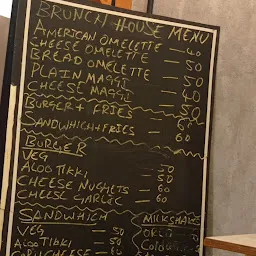 BRUNCH HOUSE MENU
AMERICAN OMELETTE - 40
CHEESE OMELETTE - 50
BREAD OMELETTE - 50
PLAIN MAGGI - 40
CHEESE MAGGI - 50
BURGER + FRIES
SANDWHICH + FRIES -
BURGER
VEG - 50
ALOO TIKKI - 50
CHEESE NUGHETS - 60
CHEESE GARLIC - 60
SANDWHICH
VEG - 50
ALOO TIKKI - 50
CORN CHEESE - 60
MILKSHAKES